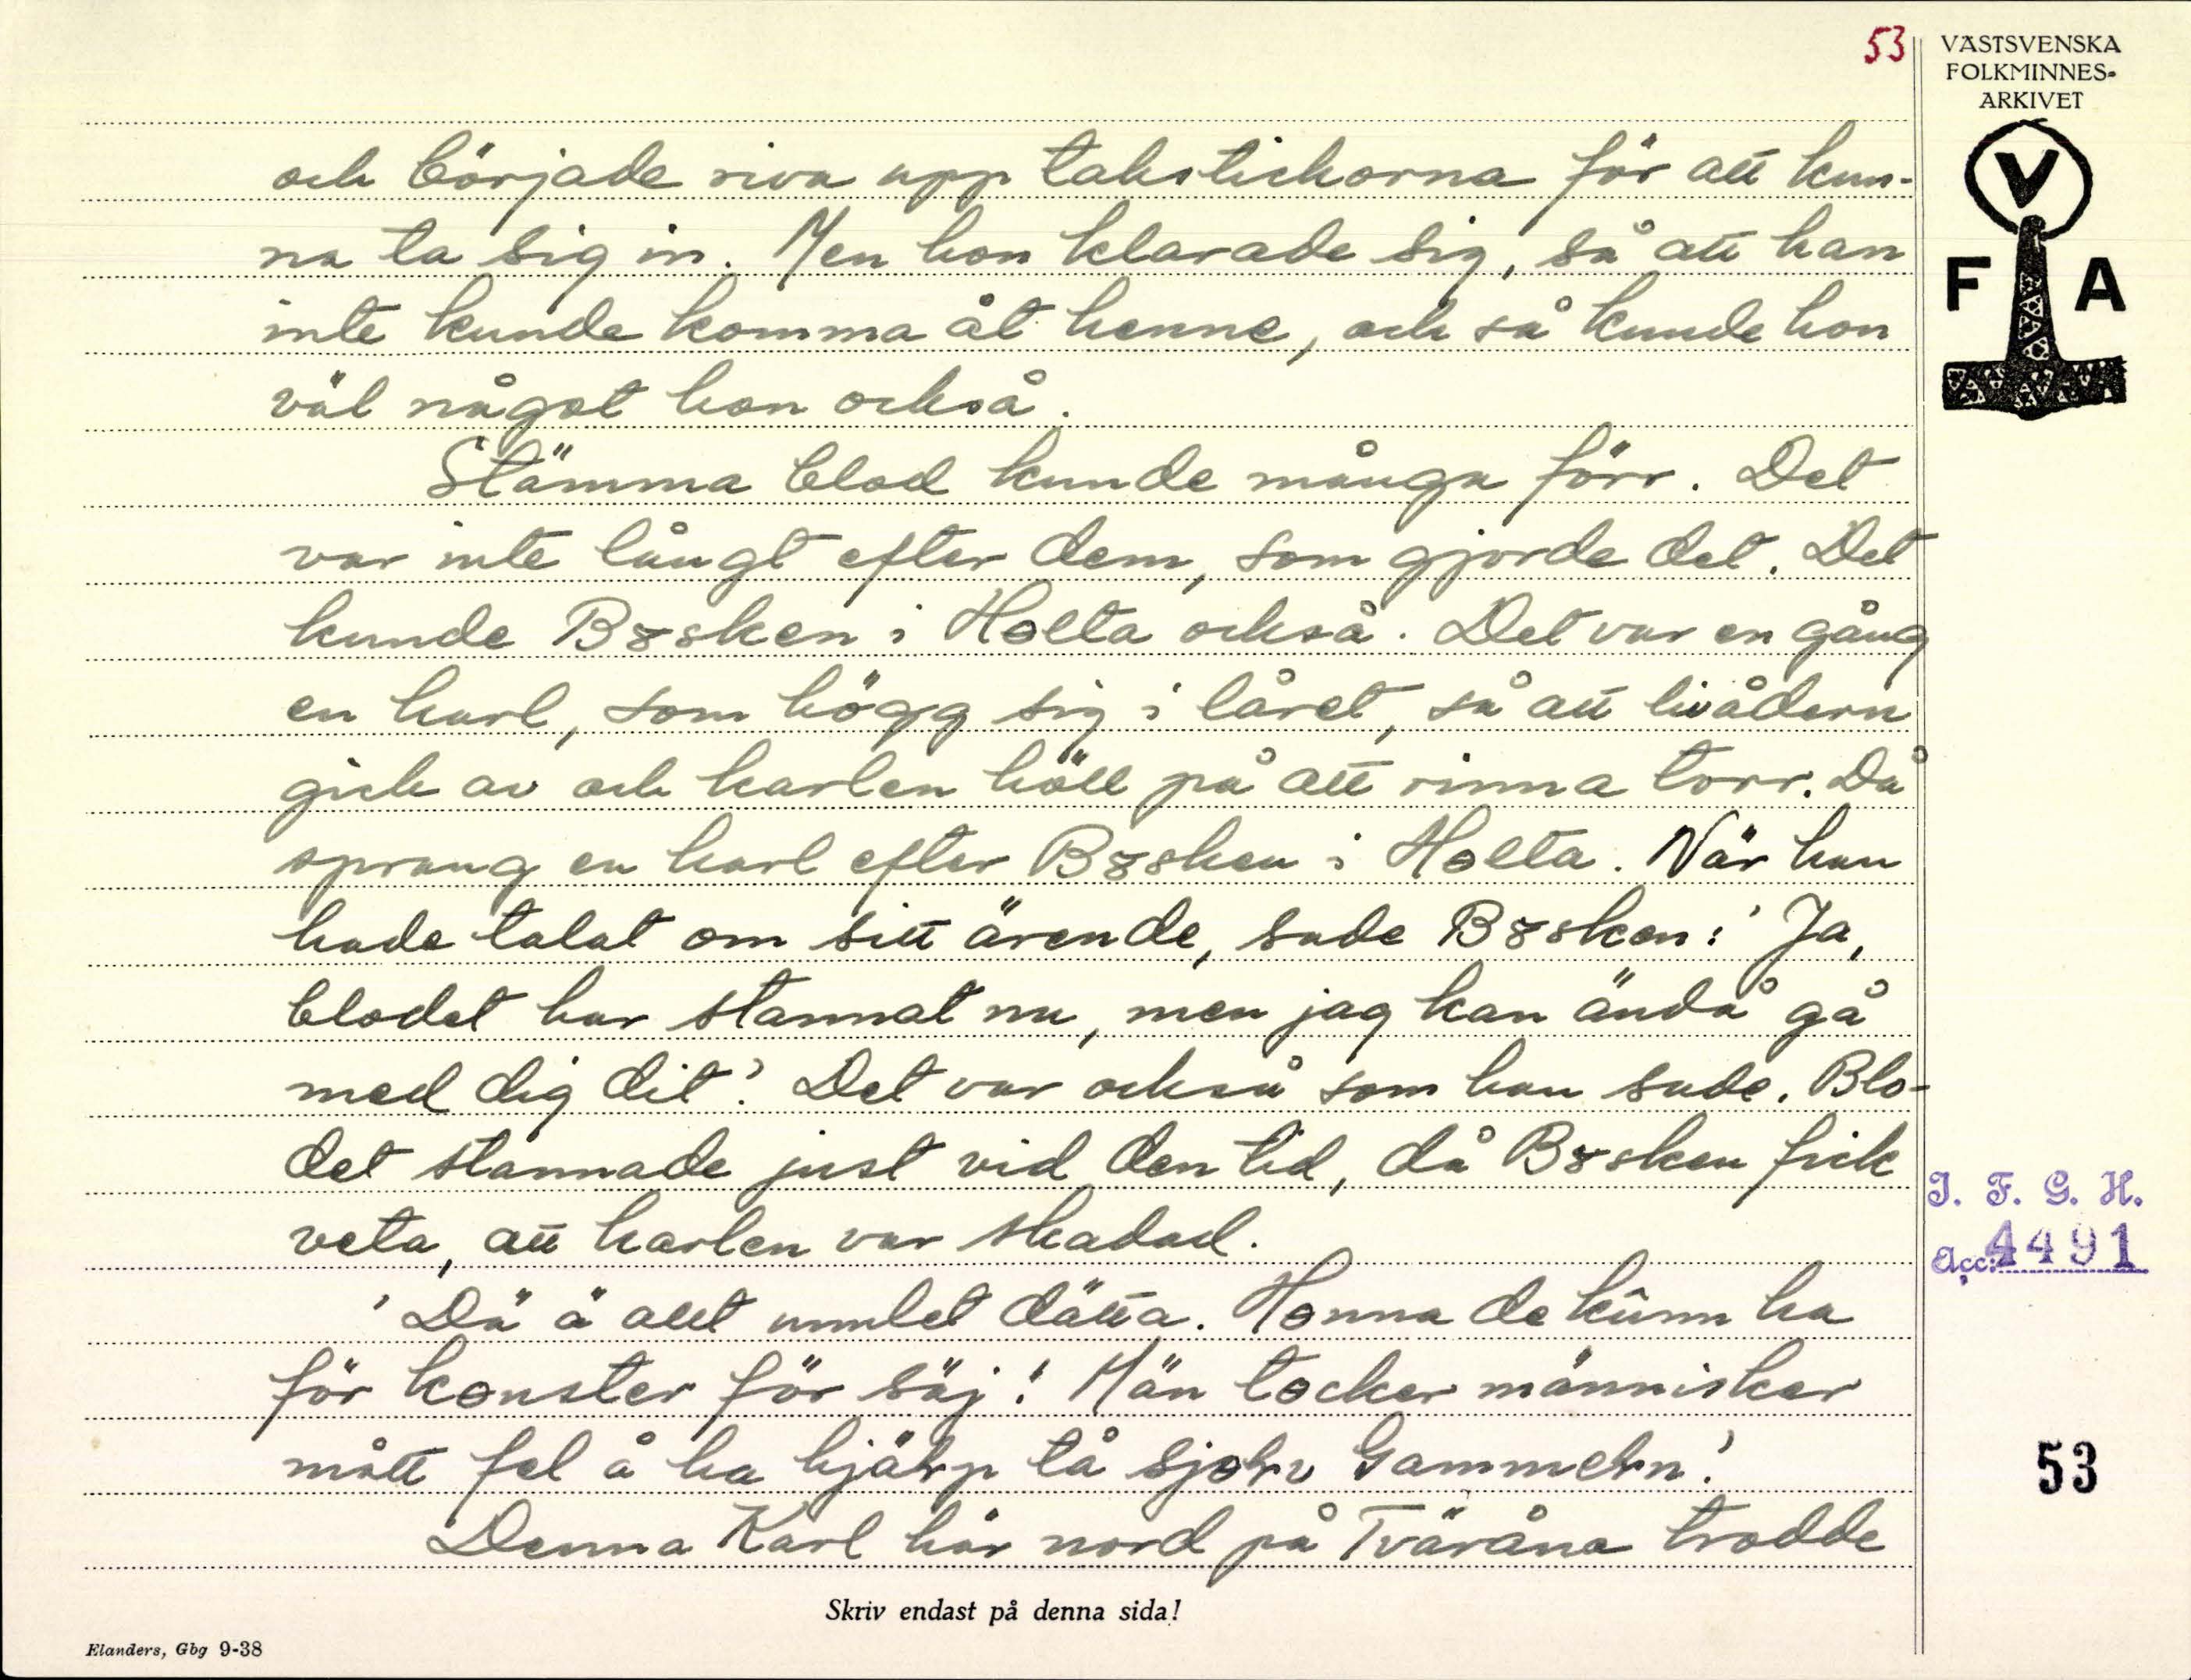 53
VÄSTSVENSKA
FOLKMINNES-
ARKIVET
V
F A
och började riva upp takstickorna för att kun-
na ta sig in. Men hon klarade sig, så att han
inte kunde komma åt henne, och så kunde hon
väl något hon också.
Stämma blod kunde många förr. Det
var inte långt efter dem, som gjorde det. Det
kunde Bɤsken i Hɵlta också. Det var en gång
en karl, som högg sig i låret, så att livådern
gick av och karlen höll på att rinna torr. Då
sprang en karl efter Bɤsken i Hɵlta. När han
hade talat om sitt ärende, sade Bɤsken: 'Ja,
blodet har stannat nu, men jag kan ändå gå
med dig dit'. Det var också som han sade. Blo-
det stannade just vid den tid, då Bɤsken fick
veta, att karlen var skadad.
'Dä ä allt unnlet dätta. Hɵnna de kûnn ha
för kɵnster för säj! Män tɵcker människer
mått fel å ha hjälp tå sjɵlv Gammeln.'
Denna Karl här nord på Tväråna trodde
I. F. G. H.
Acc: 4491
53
Skriv endast på denna sida!
Elanders, Gbg 9-38